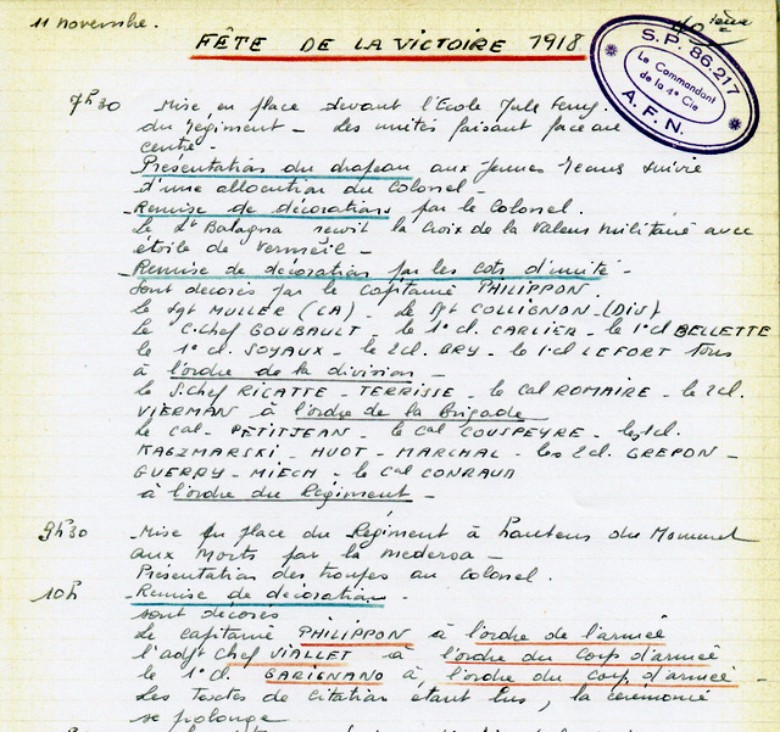 11 novembre.
40 ième
FÊTE DE LA VICTOIRE 1918
S.P. 86.217
Le Commandant
de la 4e Cie
A.F.N.
7h30 Mise en place devant l'Ecole Jule Ferry.
du régiment - Les unités faisant face au
centre -
Présentation du drapeau aux jeunes suivie
d'une allocution du Colonel -
- Remise de décorations par le Colonel.
Le Lt Balagna reçoit la Croix de la Valeur Militaire avec
étoile de Vermeil -
- Remise de décoration par les cdts d'unité -
Sont décorés par le capitaine PHILIPPON.
le sgt MULLER (CA) - le sgt COLLIGNON - (DIV)
le C.Chef GOUBAULT - le 1° cl. CARLIER - le 1°cl BELLETTE
le 1° cl. SOYAUX - le 2cl. BRY - le 1°cl LEFORT Tous
à l'ordre de la division -
le S.Chef RICATTE - TERRISSE - le cal ROMAIRE - le 2cl.
VIERMAN à l'ordre de la Brigade
Le cal - PETITJEAN - le cal COUSPEYRE - les 1cl.
KACZMARSKI - HUOT - MARCHAL - les 2cl. GREPON -
GUERRY - MIECH - le cal CONRAUD
à l'ordre du Régiment -
9h30 - Mise en place du Régiment à hauteur du Monument
aux Morts par la medersa -
Présentation des troupes au Colonel.
10h - Remise de décoration -
sont décorés
Le capitaine PHILIPPON à l'ordre de l'armée
l'adjt Chef VIALLET à l'ordre du corps d'armée
le 1° cl. GARIGNANO à, l'ordre du corp d'armée -
Les Textes de Citation étant lus, la cérémonie
se prolonge